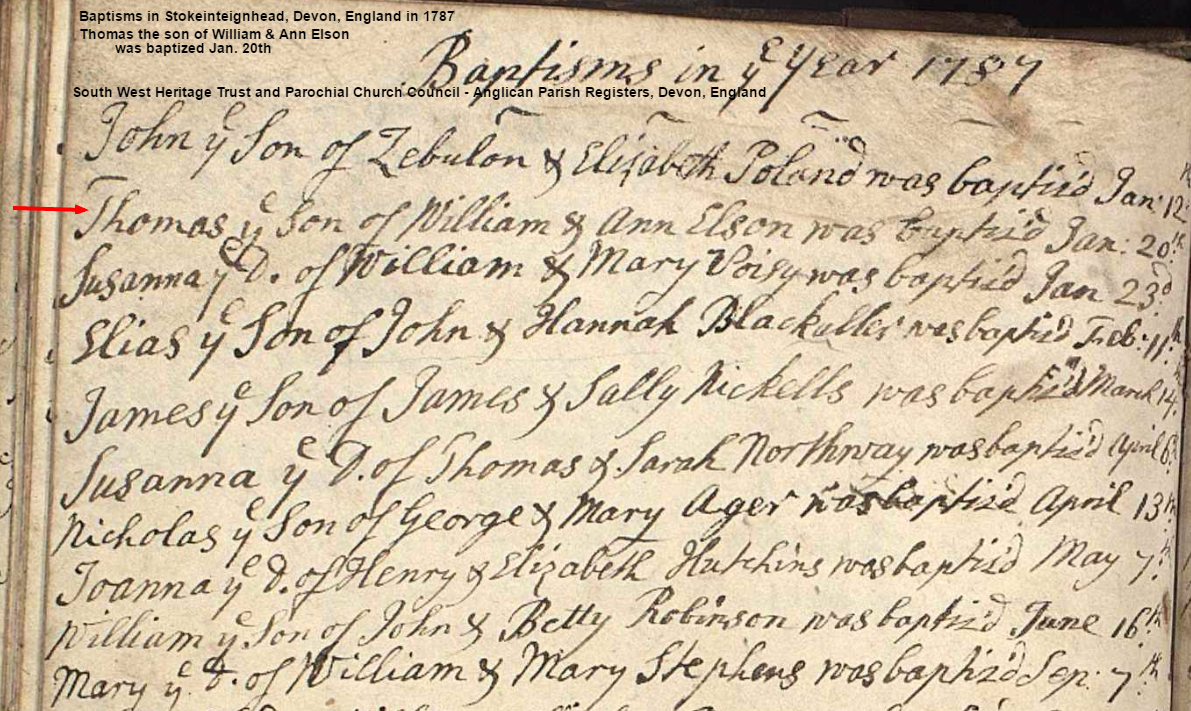 Baptisms in Stokeinteignhead, Devon, England in 1787
Thomas the son of William & Ann Elson
was baptized Jan. 20th
Baptisms in yͤ Year 1787
South West Heritage Trust and Parochial Church Council - Anglican Parish Registers, Devon, England
John yͤ Son of Zebulon & Elizabeth Poland was baptiz'd Jan: 12
Thomas yͤ Son of William & Ann Elson was baptiz'd Jan: 20th
Susanna yͤ D. of William & Mary Voisy was baptiz'd Jan 23d
Elias yͤ Son of John & Hannah Blackaller was baptiz'd Feb: 11th
James yͤ Son of James & Sally Nickells was baptiz'd March 14
Susanna yͤ D. of Thomas & Sarah Northway was baptiz'd April 6
Nicholas yͤ Son of George & Mary Ager was baptiz'd April 13th
Joanna yͤ D. of Henry & Elizabeth Hutchins was baptiz'd May 7th
William yͤ Son of John & Betty Robinson was baptiz'd June 16th
Mary yͤ D. of William & Mary Stephens was baptiz'd Sep: 7th